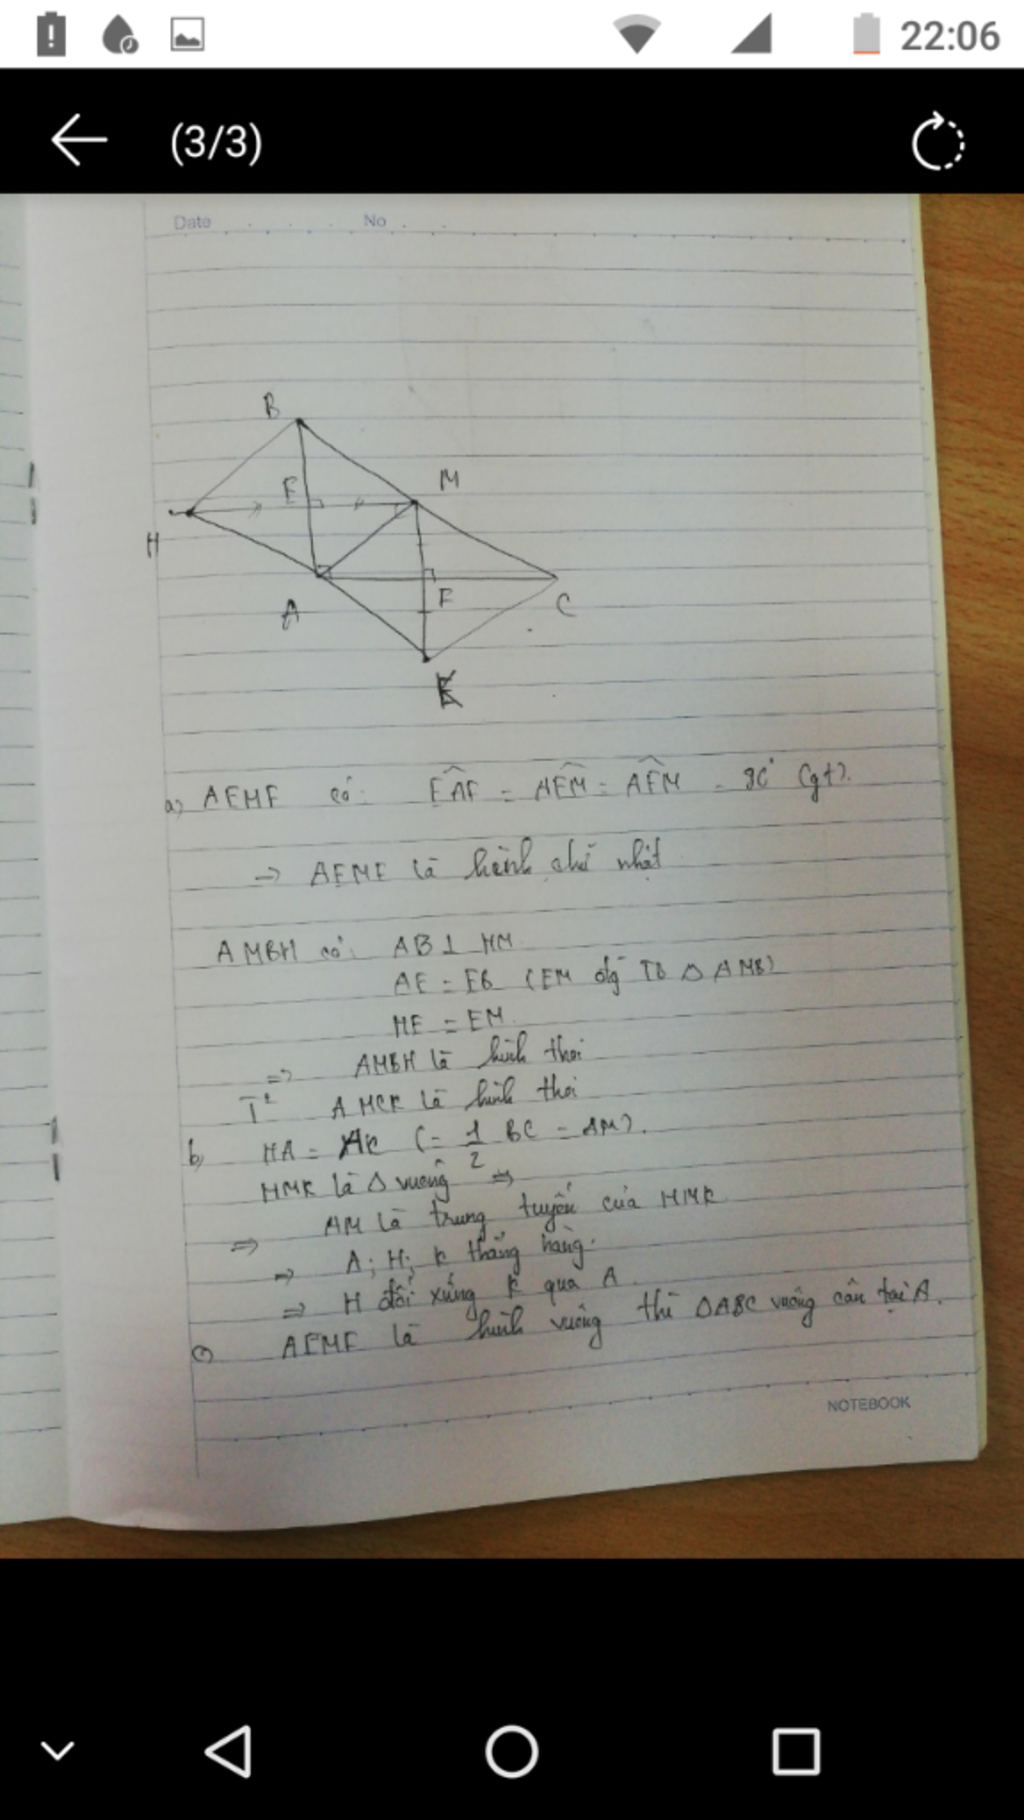 22:06
(3/3)
Date No
B
E
M
H
A
F
C
K
a) AEMF có: EAF = AEM = AFM = 90° (gt).
=> AEMF là hình chữ nhật
AMBH có: AB ⊥ HM
AE = EB (EM đg TB △ AMB)
HE = EM
=> AMBH là hình thoi
T² AMCK là hình thoi
b, HA = AK (= 1/2 BC = AM).
HMK là △ vuông =>
=> AM là trung tuyến của HMK
=> A; H; K thẳng hàng.
=> H đối xứng K qua A.
c) AEMF là hình vuông thì △ABC vuông cân tại A.
NOTEBOOK